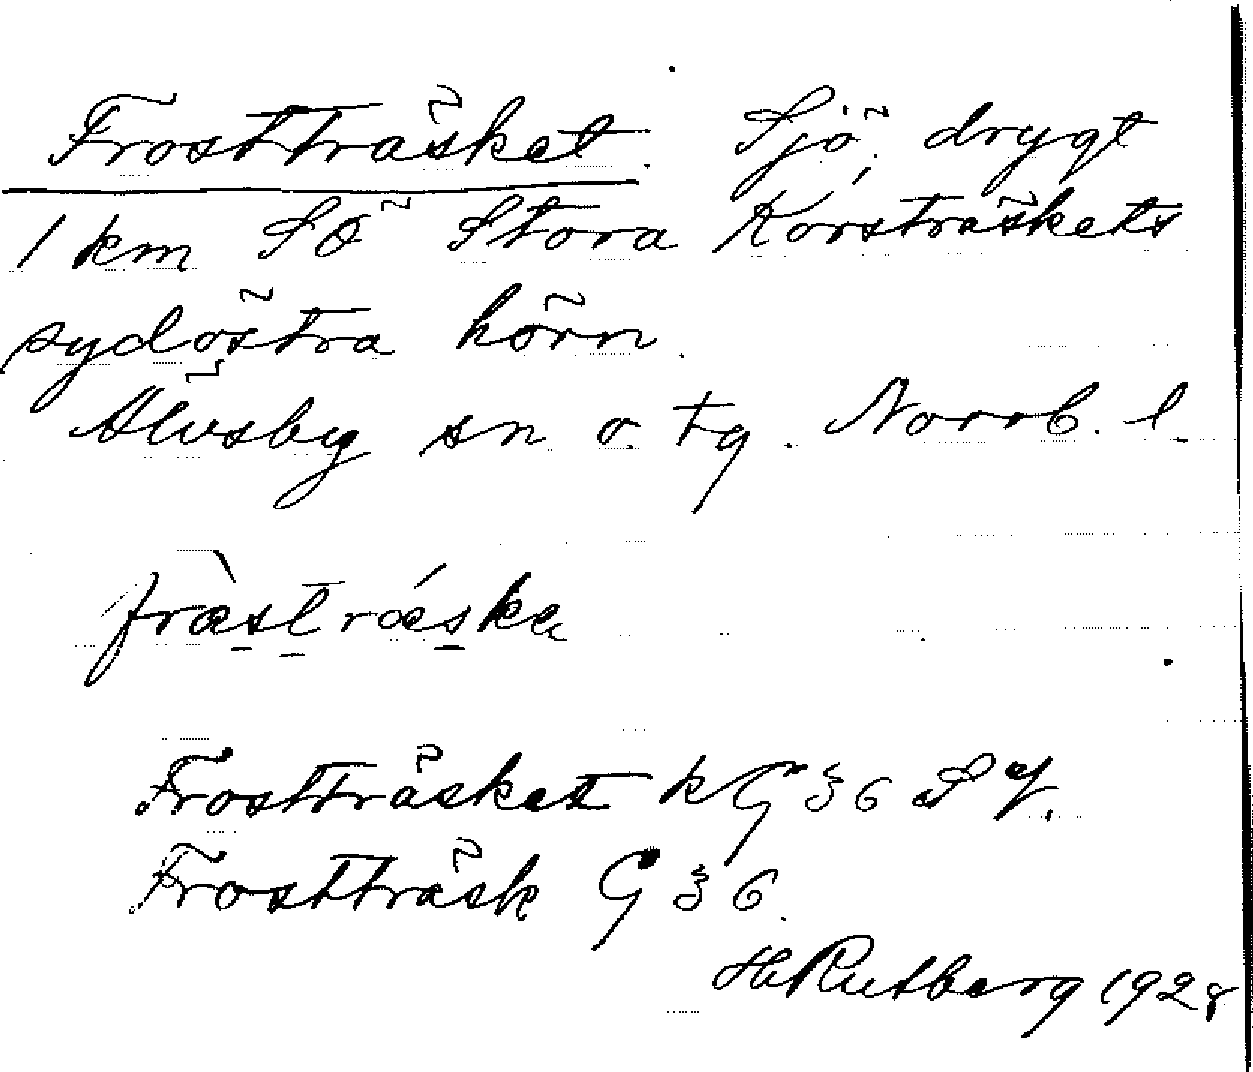 Frostträsket. Sjö, drygt
1 km SÖ Stora Korsträskets
sydöstra hörn.
Älvsby sn o. tg. Norrb. l.
fròstræ´ska
Frostträsket kG ξ 6 S Y.
Frostträsk G ξ 6.
H Rutberg 1928